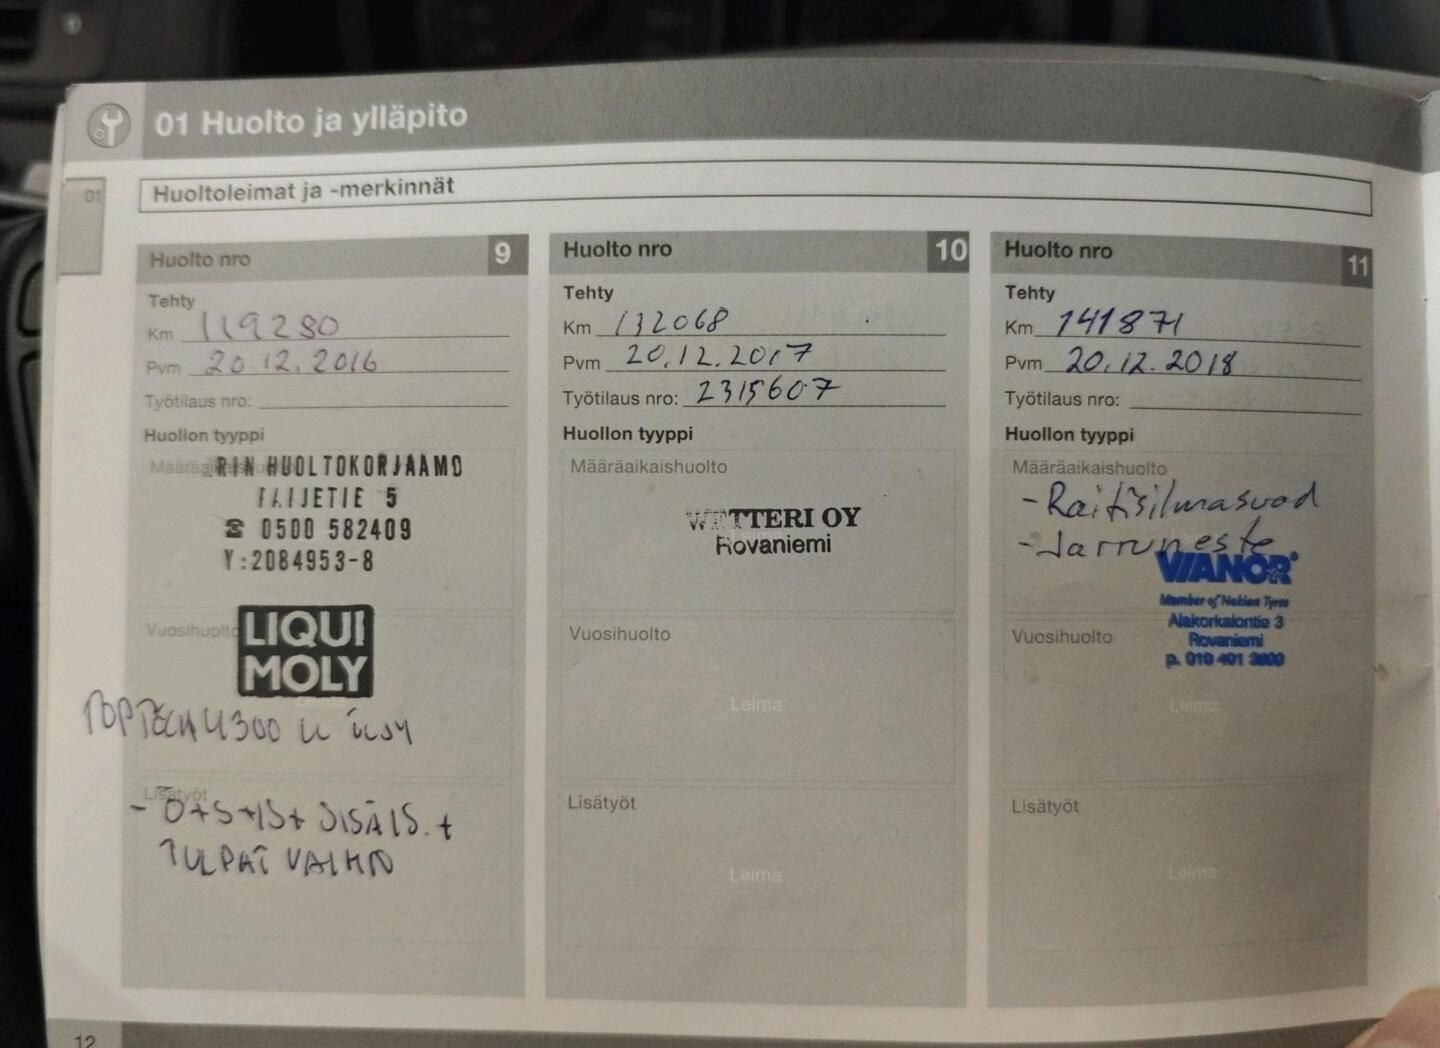 01 Huolto ja ylläpito
01
Huoltoleimat ja -merkinnät
Huolto nro 9
Tehty
Km 119280
Pvm 20.12.2016
Työtilaus nro:
Huollon tyyppi
RIN HUOLTOKORJAAMO
5
☎ 0500 582409
Y:2084953-8
Vuosihuolto
LIQUI
MOLY
TOPTECH 4300
Lisätyöt
- Ö+S+IS+ SISÄIS. +
TULPAT VAIHTO
Huolto nro 10
Tehty
Km 132068
Pvm 20.12.2017
Työtilaus nro: 2315607
Huollon tyyppi
Määräaikaishuolto
WETTERI OY
Rovaniemi
Vuosihuolto
Leima
Lisätyöt
Leima
Huolto nro 11
Tehty
Km 141871
Pvm 20.12.2018
Työtilaus nro:
Huollon tyyppi
Määräaikaishuolto
- Raitisilmasuod
- Jarruneste
VIANOR
Member of Nokian Tyres
Alakorkalontie 3
Rovaniemi
Vuosihuolto
p. 010 401
Leima
Lisätyöt
Leima
12